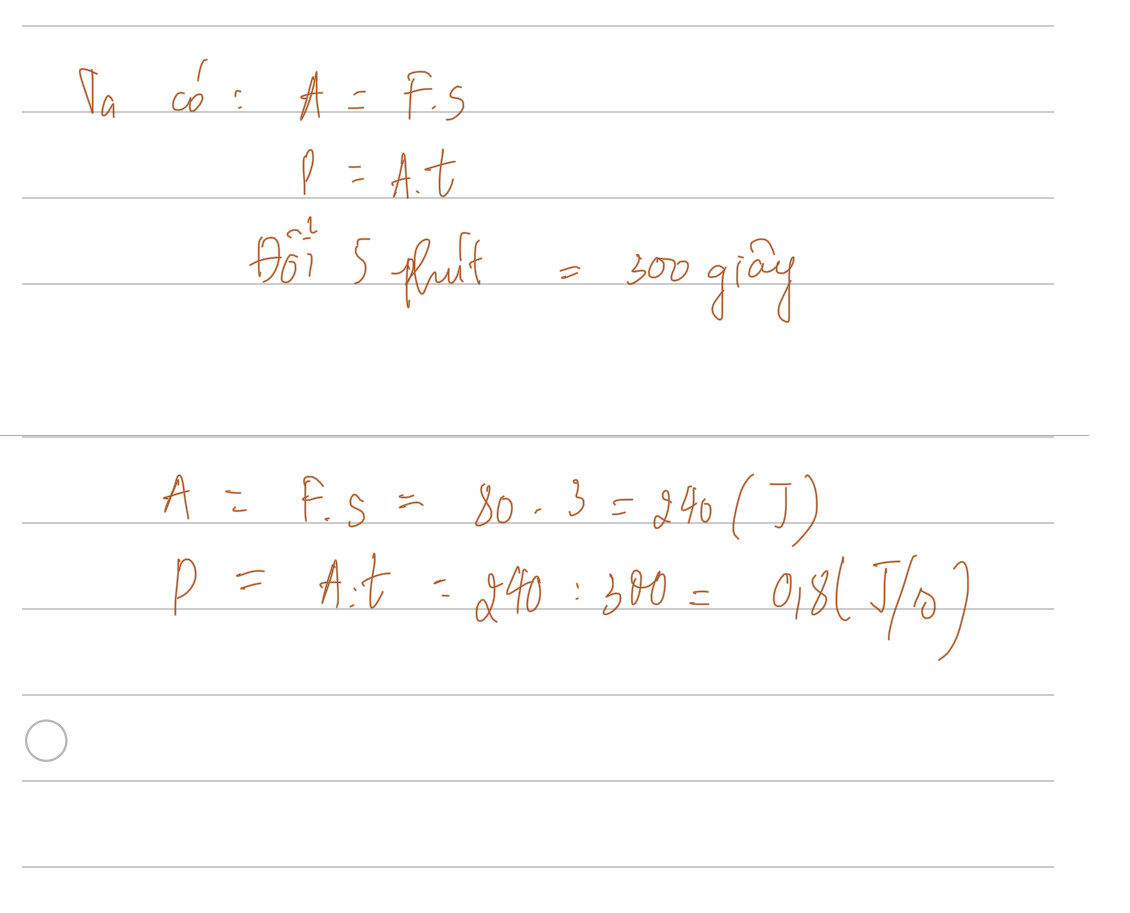 Ta có : A = F.s
P = A.t
Đổi 5 phút = 300 giây
A = F.s = 80 . 3 = 240 (J)
P = A:t = 240 : 300 = 0,8 (J/s)